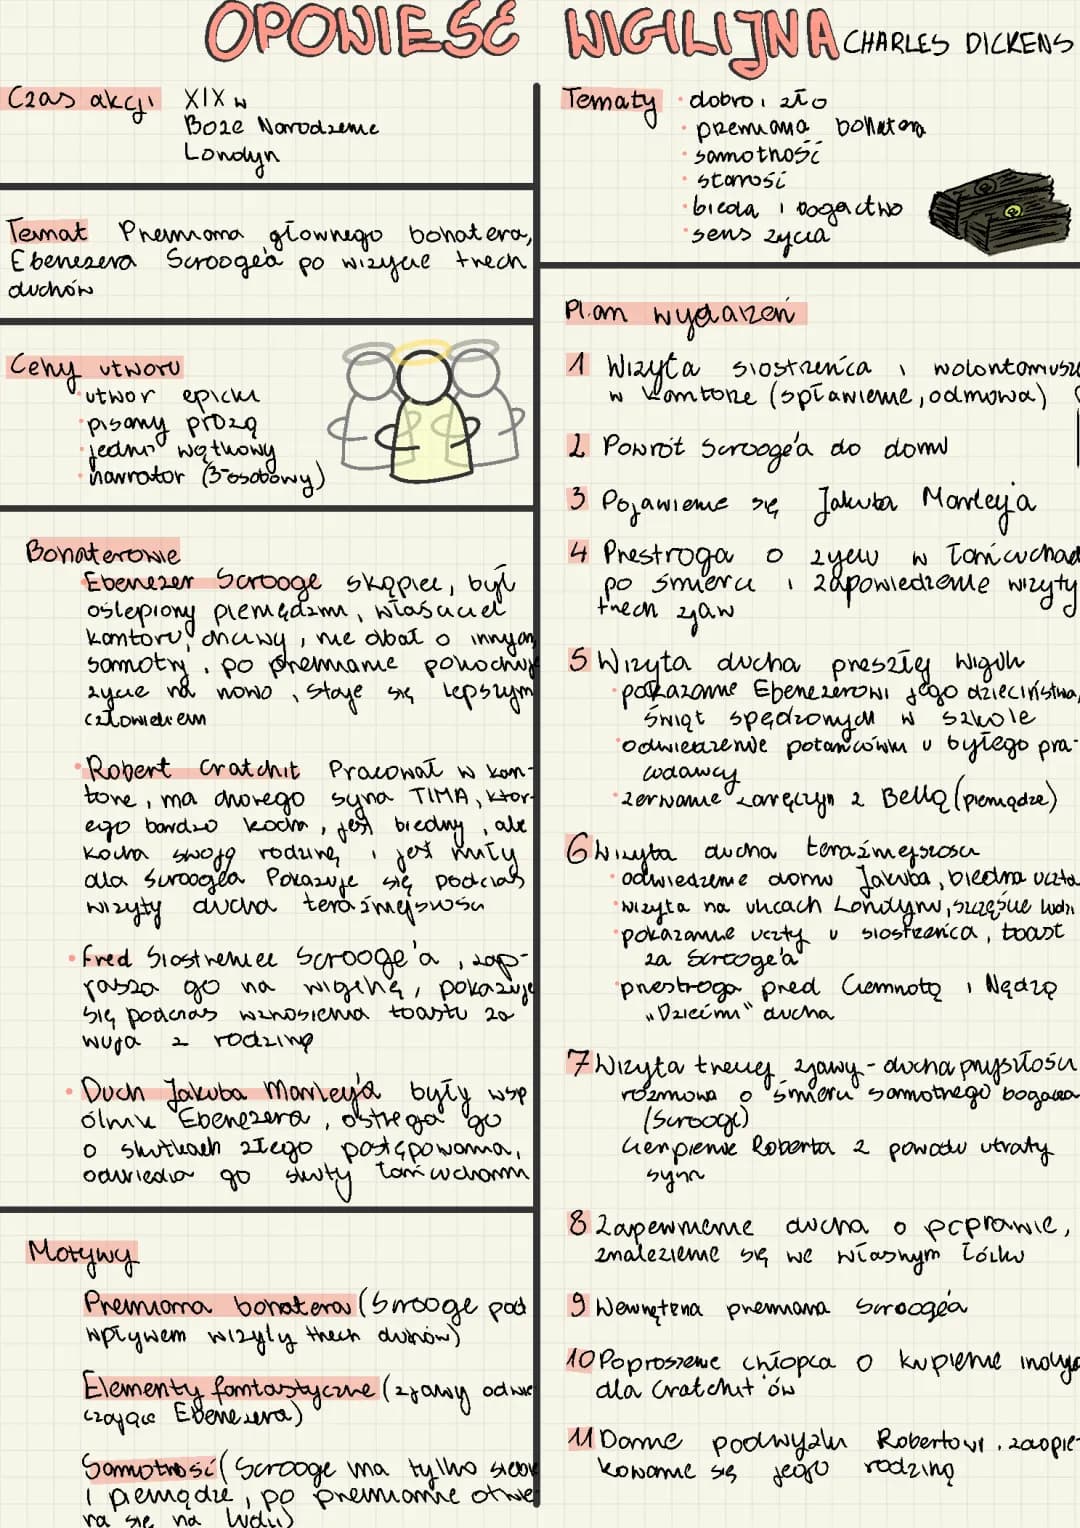 OPOWIEŚĆ WIGILIJNA CHARLES DICKENS
Czas akcji XIX w
Boże Narodzenie
Londyn
Temat Przemiana głównego bohatera,
Ebenezera Scrooge'a po wizycie trzech
duchów
Cechy utworu
• utwór epicki
• pisany prozą
• jedno wątkowy
• narrator (3-osobowy)
Bohaterowie
Ebenezer Scrooge skąpiec, był
oślepiony pieniędzmi, właściciel
kantoru, chciwy, nie dbał o innych
samotny, po przemianie pokochuje
życie na nowo, staje się lepszym
człowiekiem
• Robert Cratchit Pracował w kan-
torze, ma chorego syna TIMA, któr-
ego bardzo kocha, jest biedny, ale
kocha swoją rodzinę i jest miły
dla Scrooge'a Pokazuje się podczas
wizyty ducha teraźniejszości
• Fred Siostrzeniec Scrooge'a, zap-
rasza go na wigilię, pokazuje
się podczas wznoszenia toastu za
wuja z rodziną
• Duch Jakuba Marley'a były wsp
ólnik Ebenezera, ostrzega go
o skutkach złego postępowania,
odwiedza go skuty łańcuchami
Motywy
Przemiana bohatera (Scrooge pod
wpływem wizyty trzech duchów)
Elementy fantastyczne (zjawy odwie
dzające Ebenezera)
Samotność (Scrooge ma tylko siebie
i pieniądze, po przemianie otwie
ra się na ludzi)
Tematy • dobro i zło
• przemiana bohatera
• samotność
• starość
• bieda i bogactwo
• sens życia
Plan wydarzeń
1 Wizyta siostrzeńca i wolontariuszy
w kantorze (spławienie, odmowa)
2 Powrót Scrooge'a do domu
3 Pojawienie się Jakuba Marley'a
4 Przestroga o życiu w łańcuchach
po śmierci i zapowiedzenie wizyty
trzech zjaw
5 Wizyta ducha przeszłej wigilii
• pokazanie Ebenezerowi jego dzieciństwa,
świąt spędzonych w szkole
• odwiedzenie potańcówki u byłego pra-
codawcy
• zerwanie zaręczyn z Bellą (pieniądze)
6 Wizyta ducha teraźniejszości
• odwiedzenie domu Jakuba, biedna uczta
• wizyta na ulicach Londynu, szczęście ludzi
• pokazanie uczty u siostrzeńca, toast
za Scrooge'a
• przestroga przed Ciemnotą i Nędzą
„Dziećmi" ducha
7 Wizyta trzeciej zjawy - ducha przyszłości
rozmowa o śmierci samotnego bogacza
(Scrooge)
Cierpienie Roberta z powodu utraty
syna
8 Zapewnienie ducha o poprawie,
znalezienie się we własnym łóżku
9 Wewnętrzna przemiana Scrooge'a
10 Poproszenie chłopca o kupienie indyka
dla Cratchit'ów
11 Danie podwyżki Robertowi, zaopie-
kowanie się jego rodziną